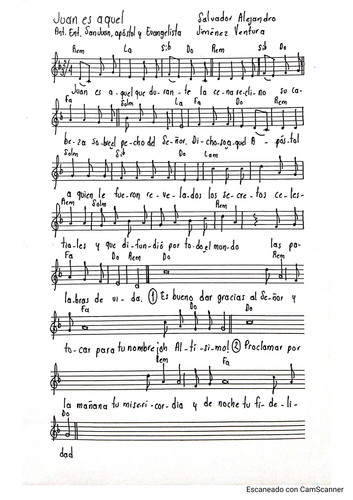 Juan es aquel
Salvador Alejandro
Ant. Ent. San Juan, apóstol y Evangelista
Jiménez Ventura
Rem La Sib Do Rem Sib Do
Juan es a-quel que du-ran-te la ce-na re-cli-nó su ca-
Fa Solm La Fa Do Rem
be-za sobre el pe-cho del Se-ñor. Di-cho-so a-quel A-pós-tol
Solm Sib Do Lam
a quien le fue-ron re-ve-la-dos los se-cre-tos ce-les-
Rem Solm Rem
tia-les y que di-fun-dió por to-do el mun-do las pa-
Fa Do Rem Do Do Rem
la-bras de vi-da. ① Es bueno dar gracias al Se-ñor y
Fa Do
to-car para tu nombre ¡oh Al-tí-si-mo! ② Proclamar por
Rem Fa
la mañana tu miseri-cor-dia y de noche tu fi-de-li-
Do
dad
Escaneado con CamScanner